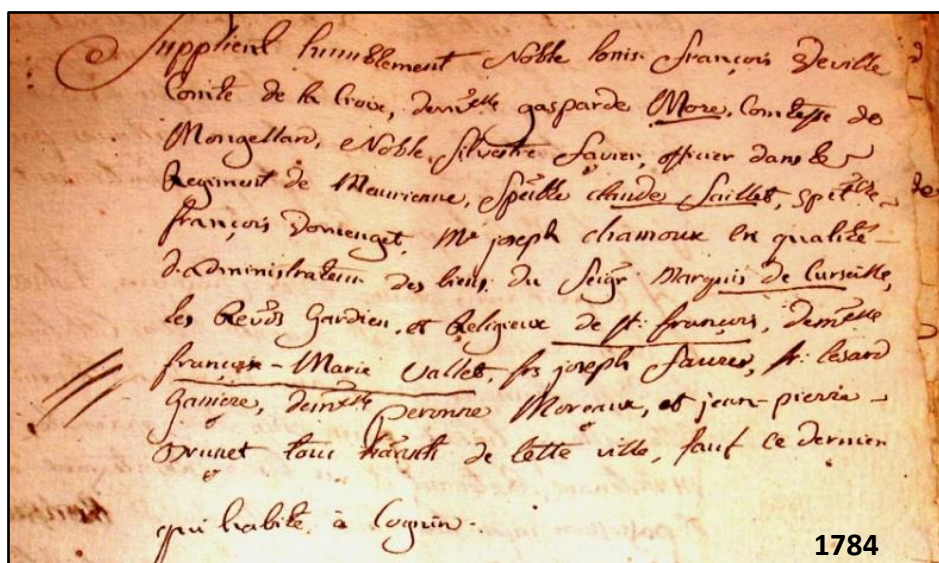 Supplient humblement Noble Louis François Deville
Comte de la Croix, dem.elle gasparde More, Comtesse de
Mongellard, Noble Silvestre Favier, officier dans le
Regiment de Maurienne, Spéble claude Saillet, Spéble
françois Domenget, Me joseph chamoux en qualité
d'administrateur des biens du Seigr Marquis de Curseille,
les Revds Gardien, et Religieux de St: françois, dem.elle
françoise-Marie Vallet, frs joseph Favre, Sr: Cesard
Ganiere, dem.elle peronne Moreaux, et jean-pierre
Brunet tous de cette ville, sauf ce dernier
qui habite à Cognin.
1784